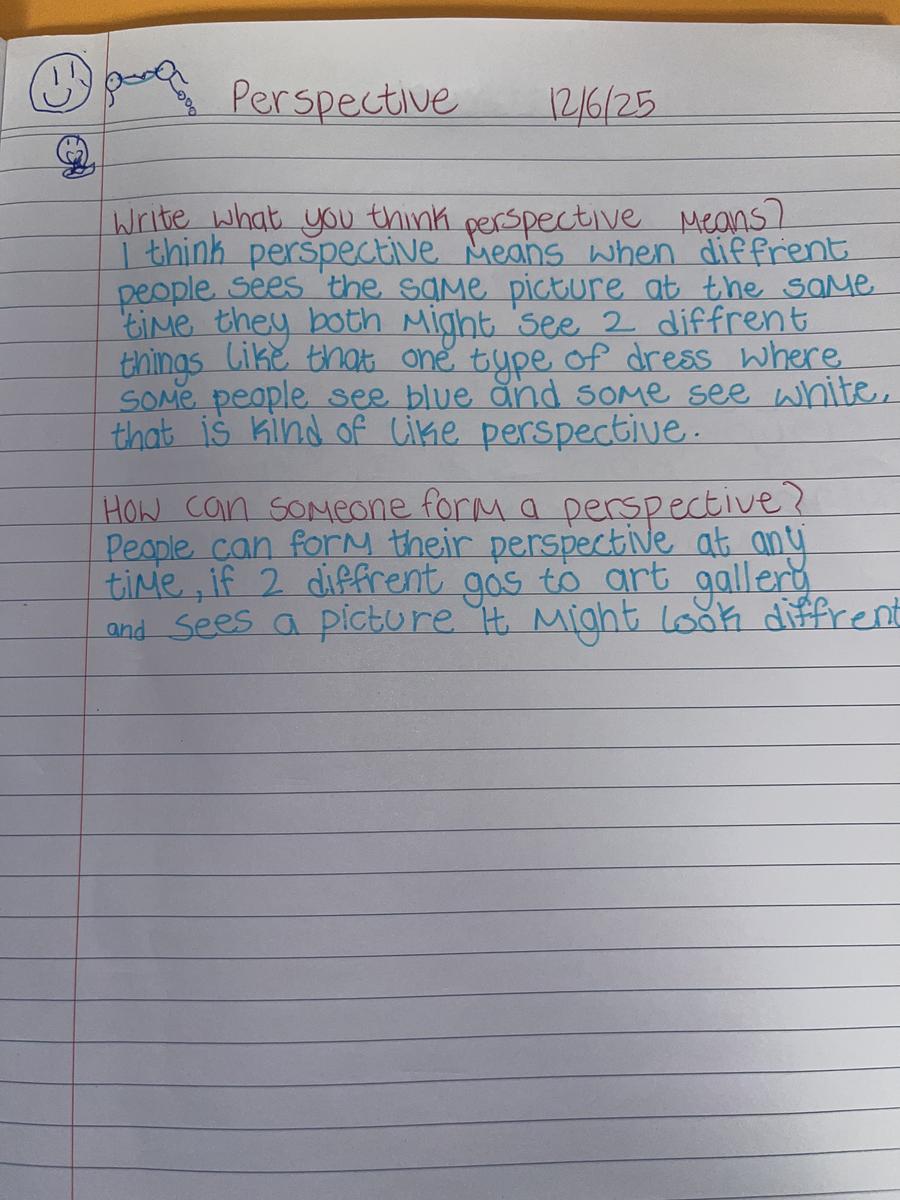 Perspective 12/6/25
Write what you think perspective means?
I think perspective means when diffrent
people sees the same picture at the same
time they both might see 2 diffrent
things like that one type of dress where
some people see blue and some see white,
that is kind of like perspective.
How can someone form a perspective?
People can form their perspective at any
time, if 2 diffrent gos to art gallery
and sees a picture it might look diffrent